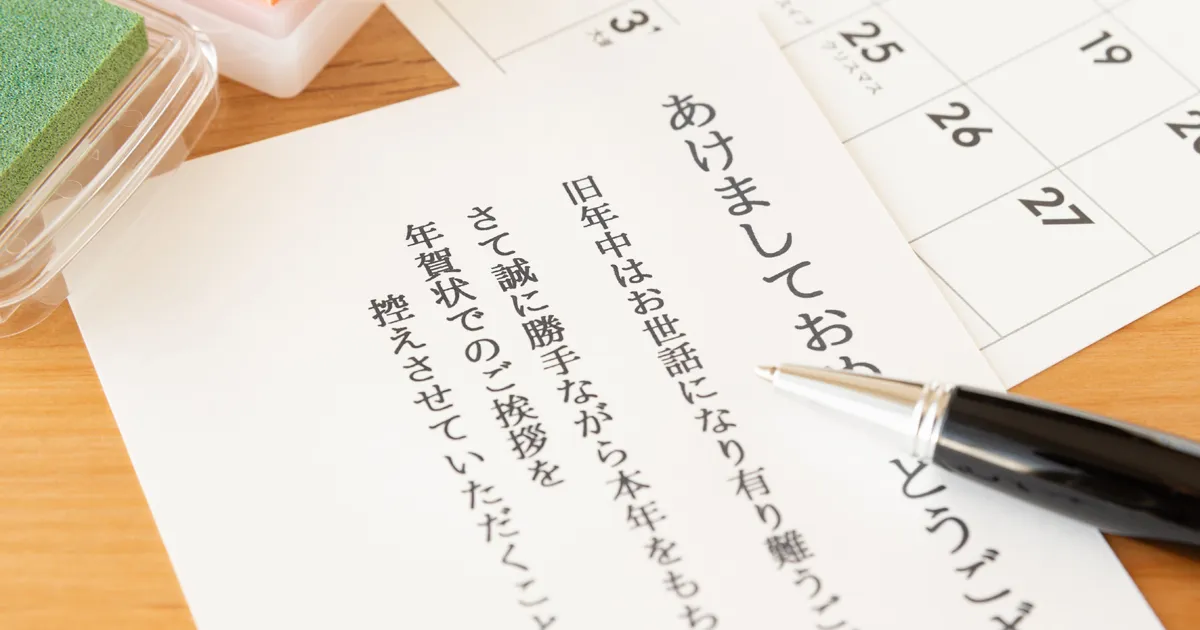 あけましておめ
とうござ
旧年中はお世話になり有り難うご
さて誠に勝手ながら本年をもち
年賀状でのご挨拶を
控えさせていただくこと
3
大雪
25
クリスマス
26
27
19